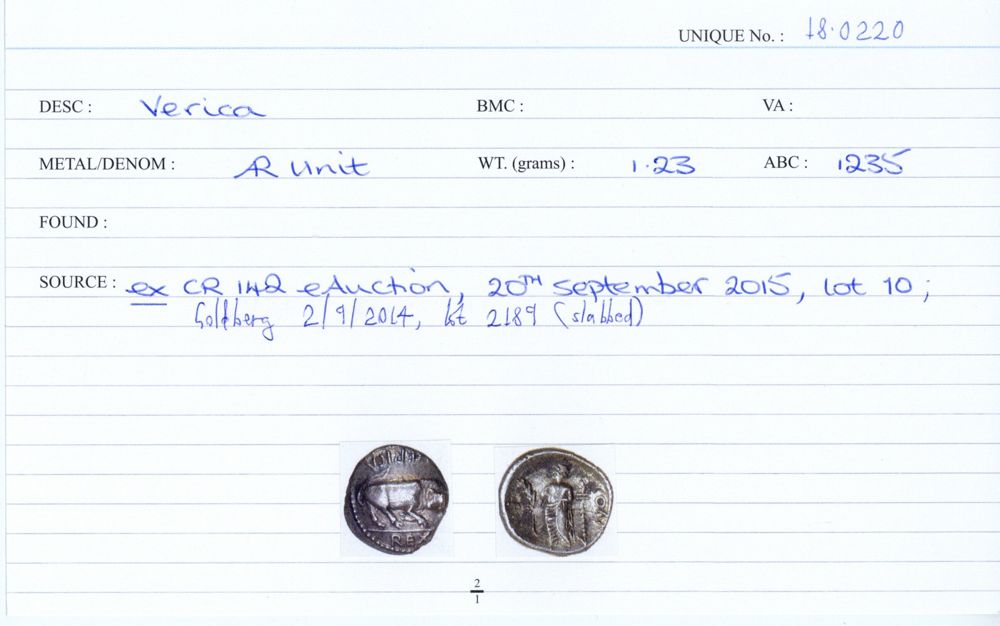 UNIQUE No. : 18.0220
DESC : Verica BMC : VA :
METAL/DENOM : AR Unit WT. (grams) : 1.23 ABC : 1235
FOUND :
SOURCE : ex CR 142 eAuction, 20TH September 2015, lot 10 ;
Goldberg 2/9/2014, lot 2189 (slabbed)
REX
2
1